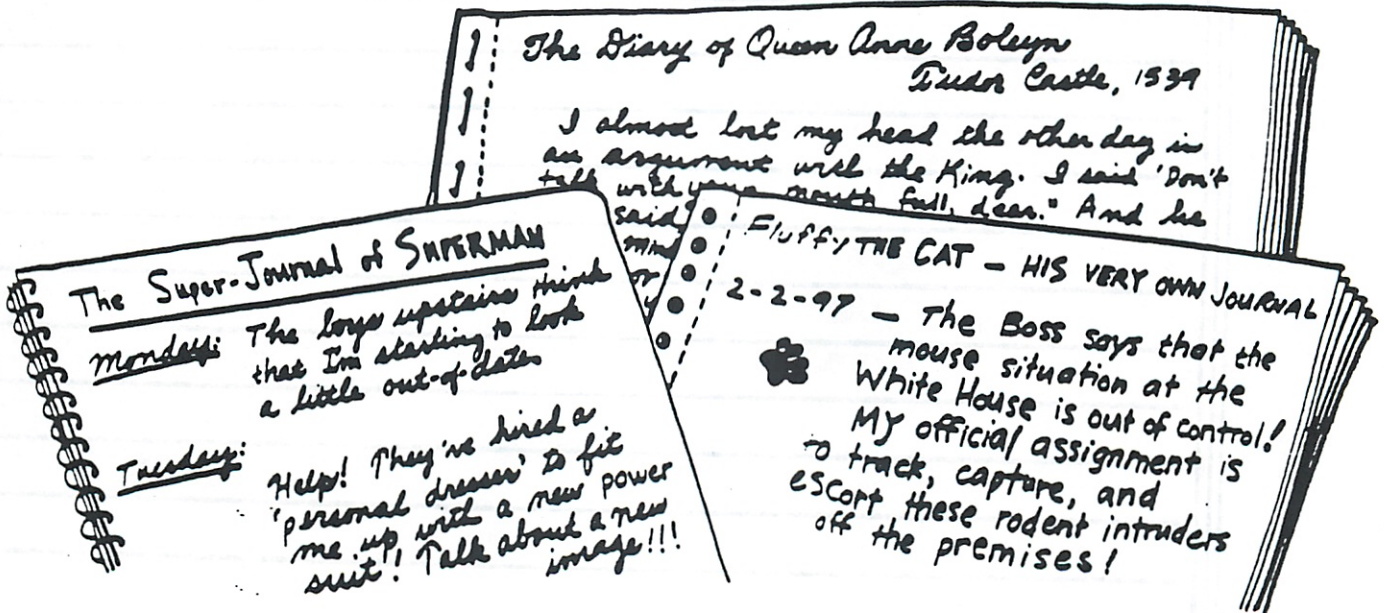 The Diary of Queen Anne Boleyn
Tudor Castle, 1539
I almost lost my head the other day in
an argument with the King. I said 'Don't
talk with your mouth full, dear." And he
said
mind
or
y
The Super-Journal of SUPERMAN
Monday: The boys upstairs think
that I'm starting to look
a little out-of-date
Tuesday:
Help! They've hired a
'personal dresser' to fit
me up with a new power
suit'! Talk about a new
image!!!
Fluffy THE CAT — HIS VERY OWN JOURNAL
2-2-97 — The Boss says that the
mouse situation at the
White House is out of control!
My official assignment is
to track, capture, and
escort these rodent intruders
off the premises!